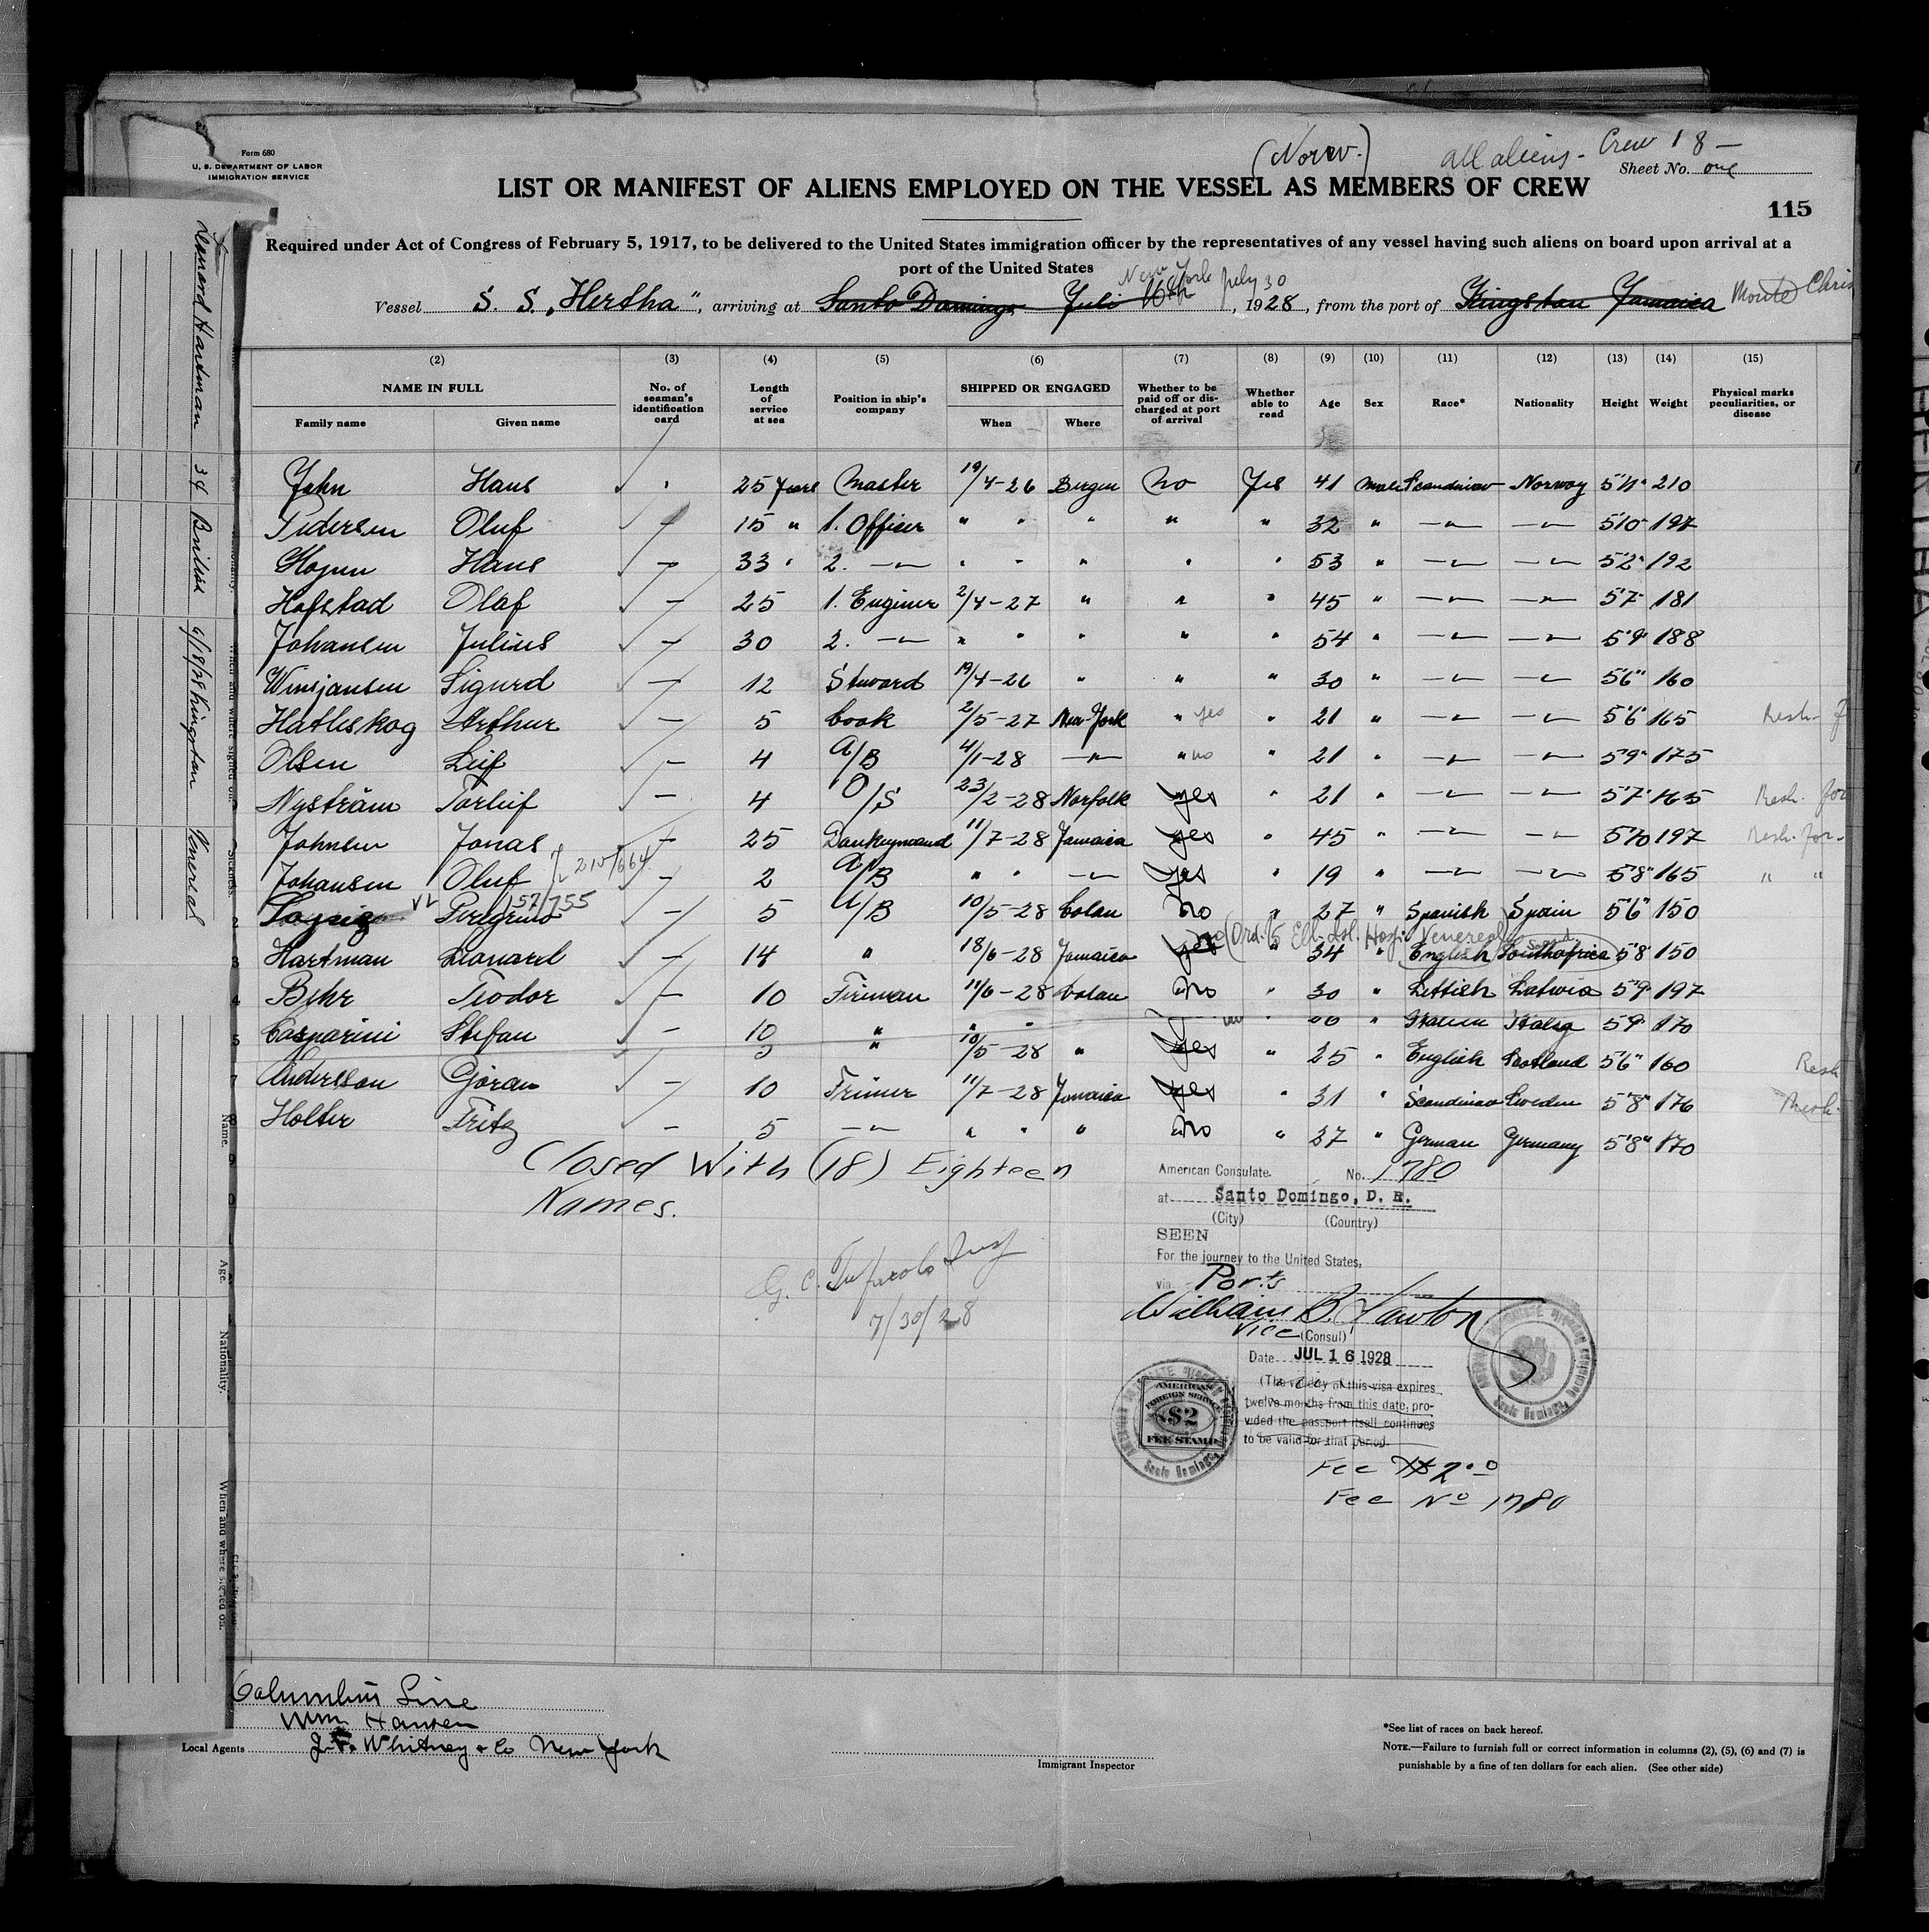 Form 680
U. S. DEPARTMENT OF LABOR
IMMIGRATION SERVICE
(Norw.) all aliens - Crew 18 -
Sheet No. one
LIST OR MANIFEST OF ALIENS EMPLOYED ON THE VESSEL AS MEMBERS OF CREW
115
Required under Act of Congress of February 5, 1917, to be delivered to the United States immigration officer by the representatives of any vessel having such aliens on board upon arrival at a
port of the United States
New York July 30
Vessel S. S. „Hertha", arriving at Santo Domingo Juli 16th, 1928, from the port of Kingston Jamaica Monte Chris
(2) (3) (4) (5) (6) (7) (8) (9) (10) (11) (12) (13) (14) (15)
NAME IN FULL
Family name Given name
No. of seaman's identification card
Length of service at sea
Position in ship's company
SHIPPED OR ENGAGED
When Where
Whether to be paid off or discharged at port of arrival
Whether able to read
Age Sex Race* Nationality Height Weight
Physical marks peculiarities, or disease
John Hans 25 years Master 19/4-26 Bergen No Yes 41 Male Scandinav Norway 5'11" 210
Pedersen Oluf 15 " 1. Officer " " " " " 32 " 5'10" 197
Hans 33 " 2. " " " " " 53 " 5'2" 192
Hofstad Olaf 25 1. Enginer 2/4-27 " " " 45 " 5'7" 181
Johansen Julius 30 2. " " " " " 54 " 5'9" 188
Sigurd 12 Steward 19/4-26 " " " 30 " 5'6" 160
Hatleskog Arthur 5 Cook 2/5-27 New-York " yes " 21 " 5'6" 165
Olsen Leif 4 A/B 4/1-28 " no " 21 " 5'9" 175
Nyström Torleif 4 O/S 23/2-28 Norfolk yes " 21 " 5'7" 165
Johnsen Jonas 25 Donkeymand 11/7-28 Jamaica yes " 45 " 5'10 197
Johansen Oluf 215/664 2 A/B " " yes " 19 " 5'8" 165 " "
157/755
Peregrino 5 A/B 10/5-28 Colon No " 27 " Spanish Spain 5'6" 150
(Ord. to Ell. Isl. Hosp. Venereal)
Hartman Leonard 14 " 18/6-28 Jamaica yes " 34 " English Southafrica 5'8 150
Behr Teodor 10 Fireman 11/6-28 Colon No " 30 " Lettish Latwia 5'9" 197
Casparini Stefan 10 " " " " Italien Italy 5'9" 170
5 " 10/5-28 " yes " 25 " English Scotland 5'6" 160
Andersson Göran 10 Trimer 11/7-28 Jamaica yes " 31 " Scandinav Sweden 5'8" 176
Holter Fritz 5 " " " No " 27 " German Germany 5'8" 170
Closed With (18) Eighteen
Names.
7/30/28
American Consulate No. 1780
at Santo Domingo, D. R.
(City) (Country)
SEEN
For the journey to the United States,
via Ports
William B. Lawton
Vice (Consul)
Date JUL 16 1928
(The validity of this visa expires
twelve months from this date, pro-
vided the passport itself continues
to be valid for that period.
Fee $2.00
Fee No 1780
AMERICAN
FOREIGN SERVICE
$2
FEE STAMP
Santo Domingo
Santo Domingo
Columbus Line
Wm Hansen
Local Agents J. F. Whitney & Co New York
Immigrant Inspector
*See list of races on back hereof.
NOTE.—Failure to furnish full or correct information in columns (2), (5), (6) and (7) is
punishable by a fine of ten dollars for each alien. (See other side)
Leonard Hartman 34 British 6/18/28 Kingston Venereal
Nationality. When and where signed on. Sickness.
Name. Age. Nationality. When and where signed on.